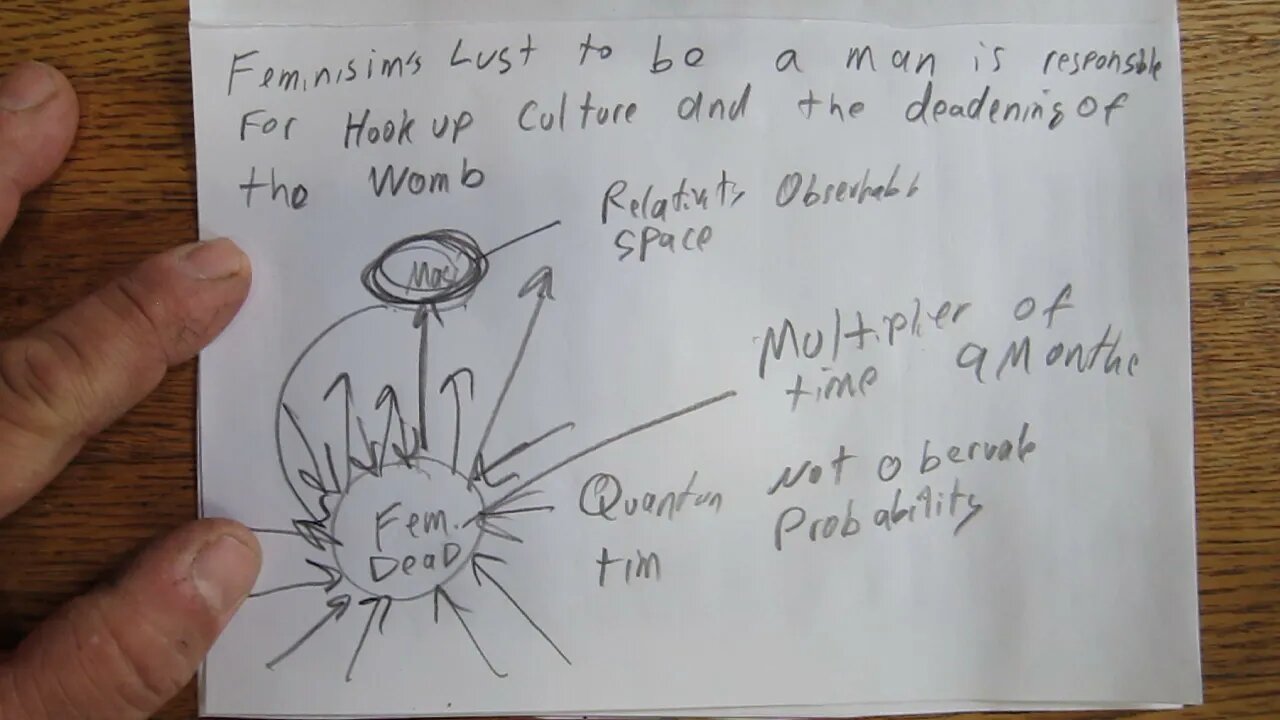 Feminisim's Lust to be a man is responsble
For Hook up Culture and the deadening of
the Womb
Relativity Observabl
space
Mas
Multiplier of
time 9 Months
Fem.
DeaD
Quantun Not Obervale
tim Probability